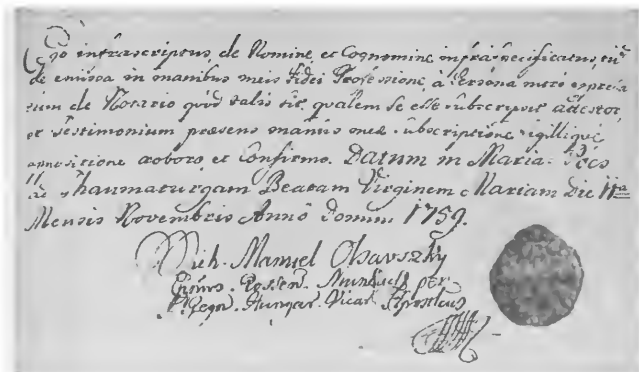 Ego infrascriptus, de Nomine, et Cognomine infra specificatus, tum
de emissa in manibus meis Fidei Professione, à Persona
tum de Notario quod talis sit, qualem se esse subscripsit adtestor,
et Testimonium praesens manus meae subscriptione, sigillique
appositione roboro, et Confirmo. Datum in Maria-Pocs
ad Thaumaturgam Beatam Virginem Mariam Die 11ma
Mensis Novembris Anno Domini 1759.
Mich. Manuel Olsavszky
Eppus. Rossen. Munkats. per
Regn. Hungar. Vicar. Aposticus